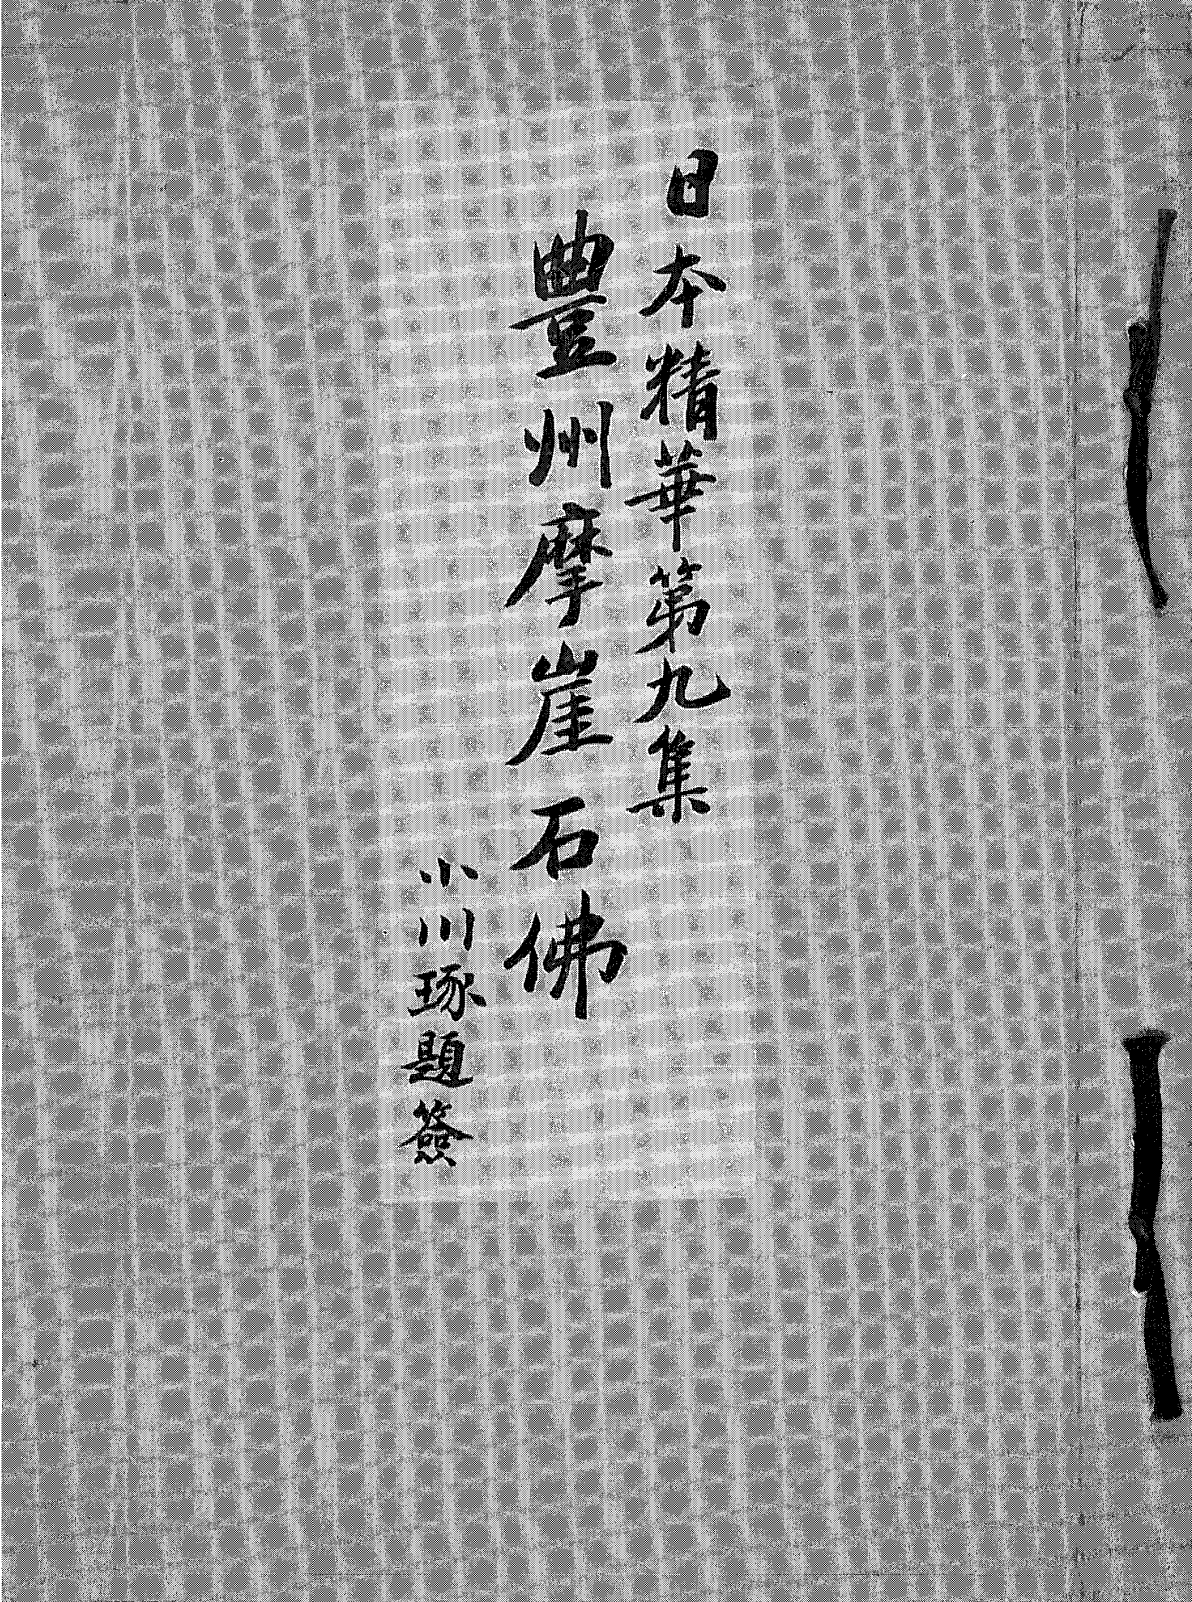 日本精華第九集
豊州摩崖石佛
小川琢題簽